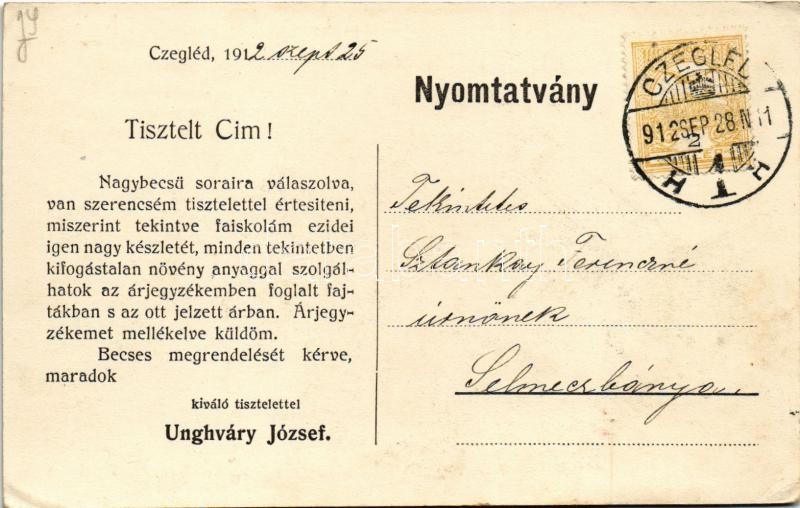 Czegléd, 1912 szept 25
Tisztelt Cim!
Nagybecsü soraira válaszolva,
van szerencsém tisztelettel értesiteni,
miszerint tekintve faiskolám ezidei
igen nagy készletét, minden tekintetben
kifogástalan növény anyaggal szolgál-
hatok az árjegyzékemben foglalt faj-
tákban s az ott jelzett árban. Árjegy-
zékemet mellékelve küldöm.
Becses megrendelését kérve,
maradok
kiváló tisztelettel
Unghváry József.
Nyomtatvány
CZEGLÉD
912 SEP 28 N 11
2
H 1 H
Tekintetes
Sztankay Ferenczné
úrnőnek
Selmeczbánya.